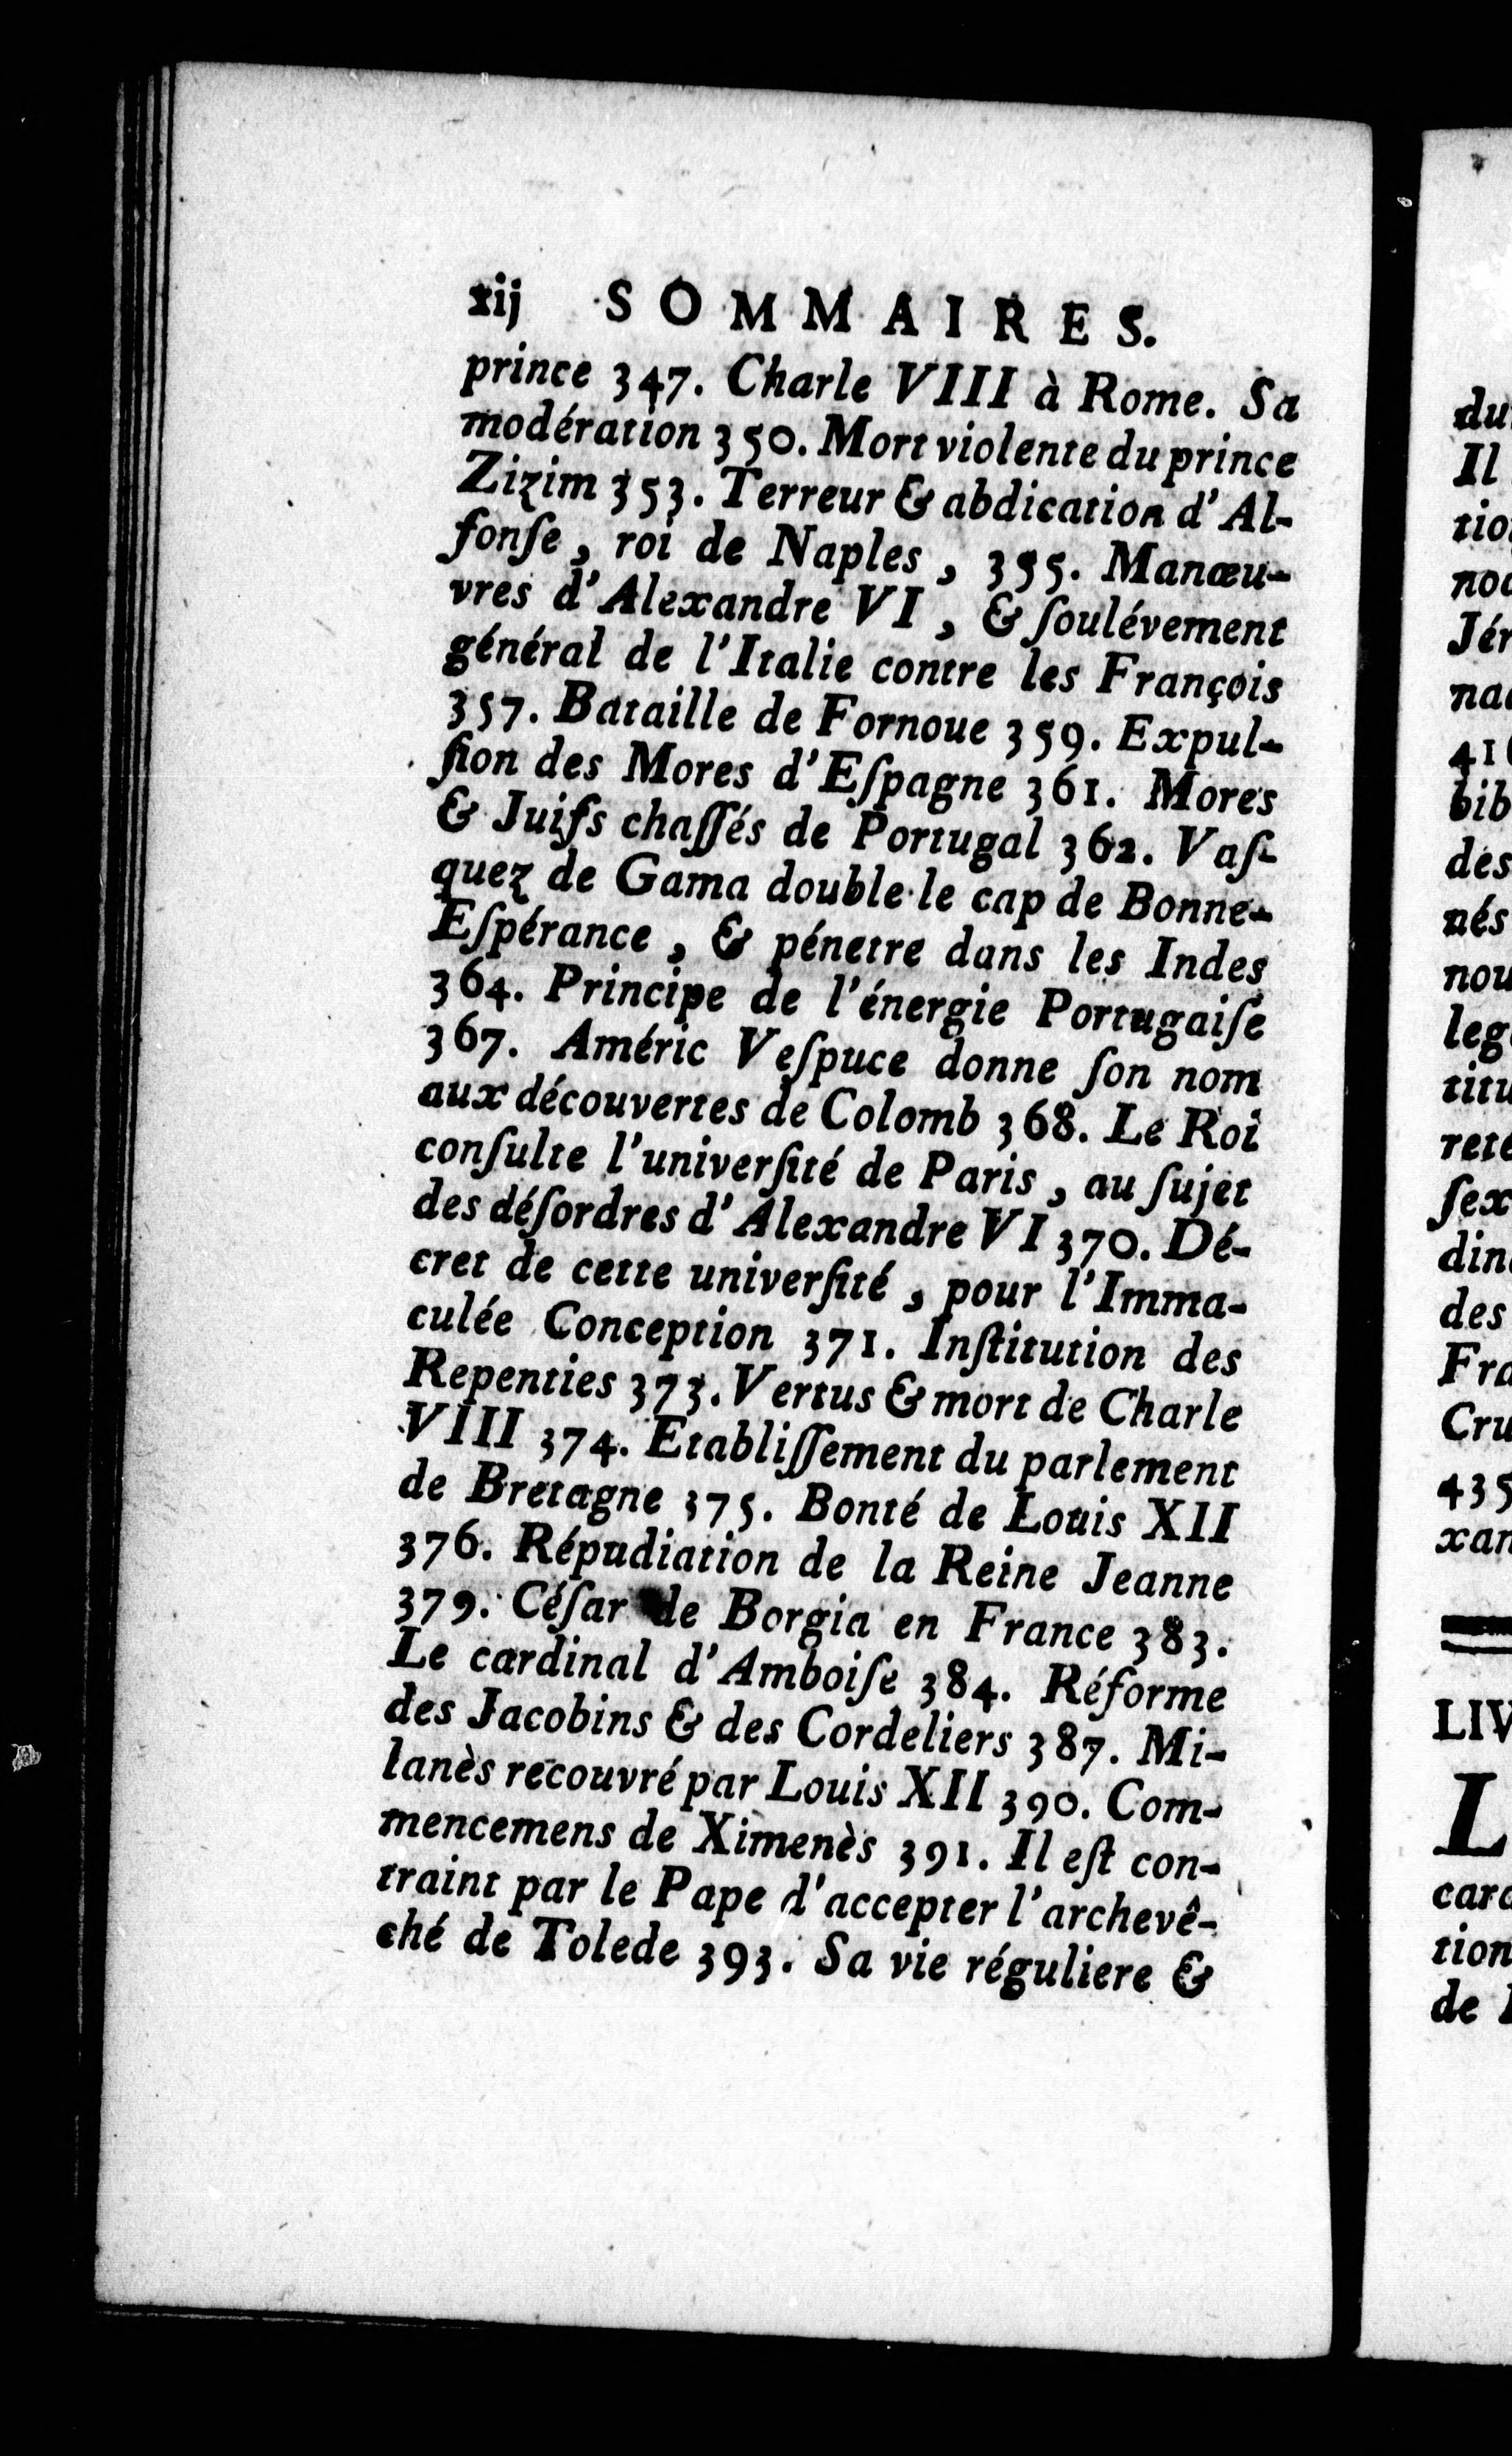 xij SOMMAIRES.
prince 347. Charle VIII à Rome. Sa
modération 350. Mort violente du prince
Zizim 353. Terreur & abdication d'Al-
fonſe, roi de Naples, 355. Manœu-
vres d'Alexandre VI, & ſoulévement
général de l'Italie contre les François
357. Bataille de Fornoue 359. Expul-
ſion des Mores d'Eſpagne 361. Mores
& Juifs chaſſés de Portugal 362. Vaſ-
quez de Gama double le cap de Bonne-
Eſpérance, & pénetre dans les Indes
364. Principe de l'énergie Portugaiſe
367. Améric Veſpuce donne ſon nom
aux découvertes de Colomb 368. Le Roi
conſulte l'univerſité de Paris, au ſujet
des déſordres d'Alexandre VI 370. Dé-
cret de cette univerſité, pour l'Imma-
culée Conception 371. Inſtitution des
Repenties 373. Vertus & mort de Charle
VIII 374. Etabliſſement du parlement
de Bretagne 375. Bonté de Louis XII
376. Répudiation de la Reine Jeanne
379. Céſar de Borgia en France 383.
Le cardinal d'Amboiſe 384. Réforme
des Jacobins & des Cordeliers 387. Mi-
lanès recouvré par Louis XII 390. Com-
mencemens de Ximenès 391. Il eſt con-
traint par le Pape d'accepter l'archevê-
ché de Tolede 393. Sa vie réguliere &